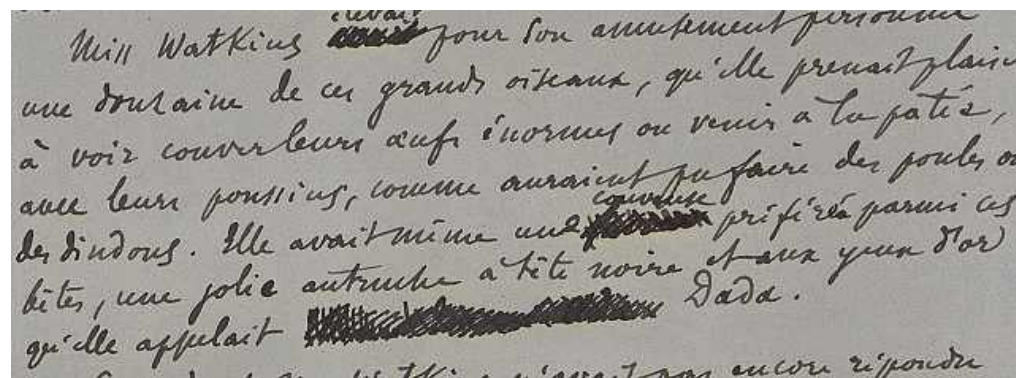 élevait
Miss Watkins pour son amusement personnel
une douzaine de ces grands oiseaux, qu'elle prenait plaisir
à voir couver leurs œufs énormes ou venir à la pâtée,
avec leurs poussins, comme auraient pu faire des poules ou
couveuse
des dindons. Elle avait même une préférée parmi ces
bêtes, une jolie autruche à tête noire et aux yeux d'or
qu'elle appelait Dada.
Watkins n'avait pas encore répondu